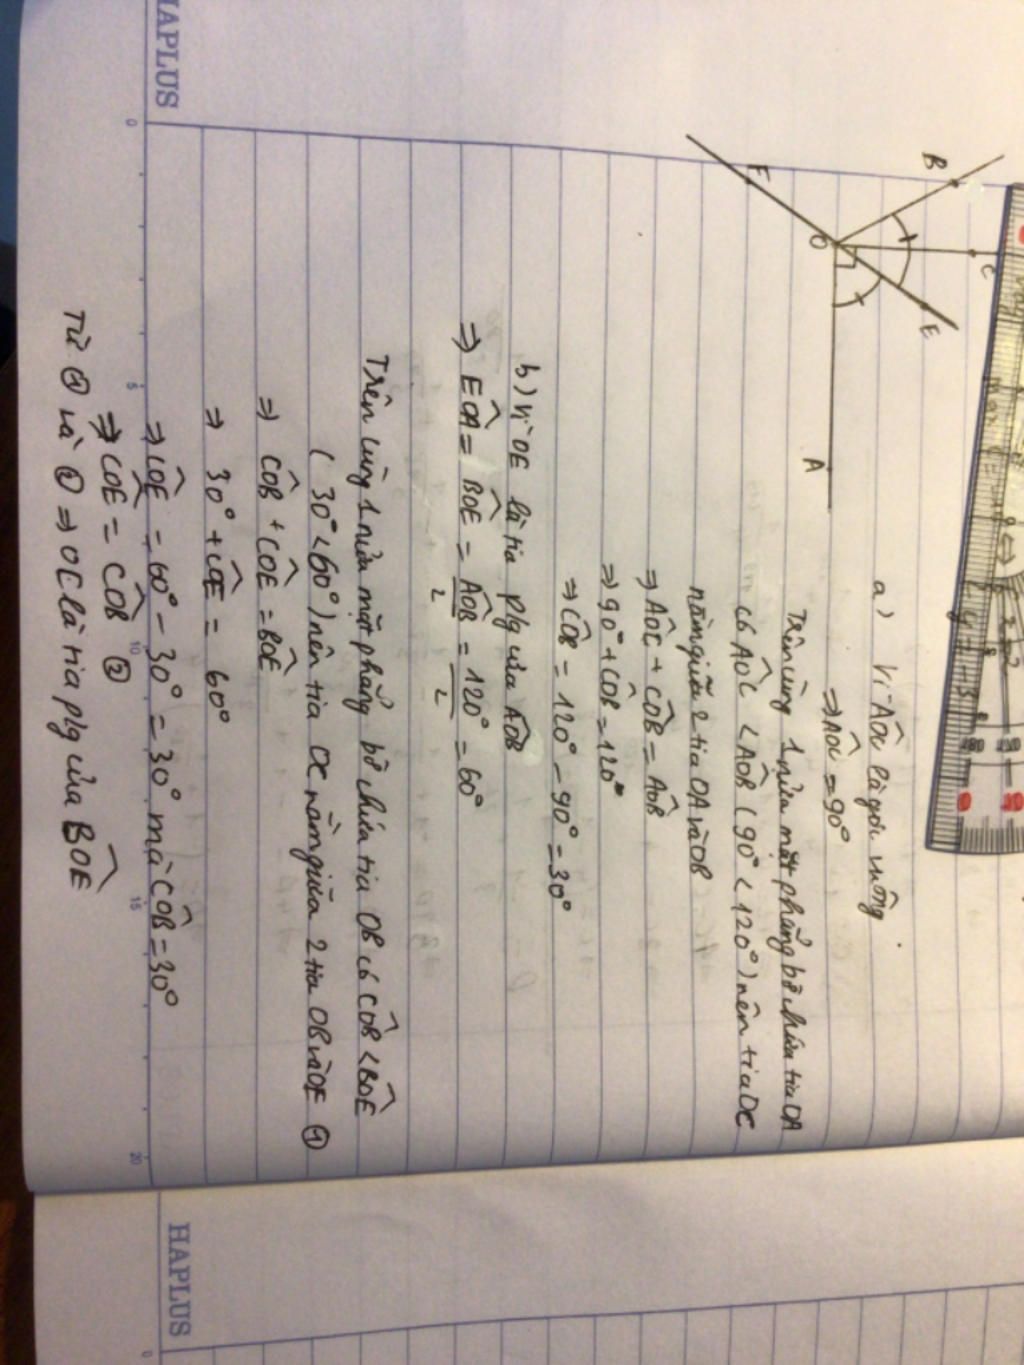 HAPLUS
B
C
E
F
O
A
a) Vì AÔC là góc vuông
⇒ AÔC = 90°
Trên cùng 1 nửa mặt phẳng bờ chứa tia OA
có AÔC < AÔB (90° < 120°) nên tia OC
nằm giữa 2 tia OA và OB
⇒ AÔC + CÔB = AÔB
⇒ 90° + CÔB = 120°
⇒ CÔB = 120° - 90° = 30°
b) Vì OE là tia p/g của AÔB
⇒ EÔA = BÔE = AÔB/2 = 120°/2 = 60°
Trên cùng 1 nửa mặt phẳng bờ chứa tia OB có CÔB < BÔE
(30° < 60°) nên tia OC nằm giữa 2 tia OB và OE ①
⇒ CÔB + CÔE = BÔE
⇒ 30° + CÔE = 60°
⇒ CÔE = 60° - 30° = 30° mà CÔB = 30°
⇒ CÔE = CÔB ②
Từ ① và ② ⇒ OC là tia p/g của BÔE
0 5 10 15 20
HAPLUS
0